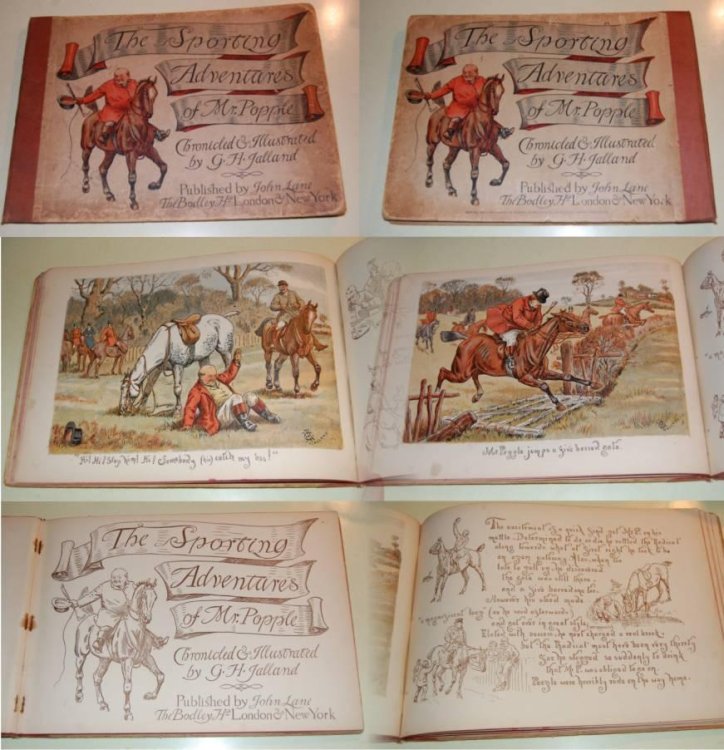 The Sporting
Adventures
of Mr. Popple
Chronicled & Illustrated
by G. H. Jalland
Published by John Lane
The Bodley Hd London & New York
The Sporting
Adventures
of Mr. Popple
Chronicled & Illustrated
by G. H. Jalland
Published by John Lane
The Bodley Hd London & New York
"Hi! Hi! Stop him! Hi! Somebody catch my 'oss!"
Mr. Popple jumps a five barred gate.
The Sporting
Adventures
of Mr. Popple
Chronicled & Illustrated
by G. H. Jalland
Published by John Lane
The Bodley Hd London & New York
The excitement of a quick find got Mr P. on his
mettle. Determined to do or die, he rattled the Radical
along towards what at first sight he took to be
an open gateway. Alas, when too
late to pull up, he discovered
the gate was still there,
and a five barred one too.
However his steed made
"a magnificent leap" (as he said afterwards)
and got over in great style.
Elated with success, he next charged a real brook,
but the Radical must have been very thirsty
for he stopped so suddenly to drink
that Mr P. was obliged to go on.
People were horribly rude on the way home.